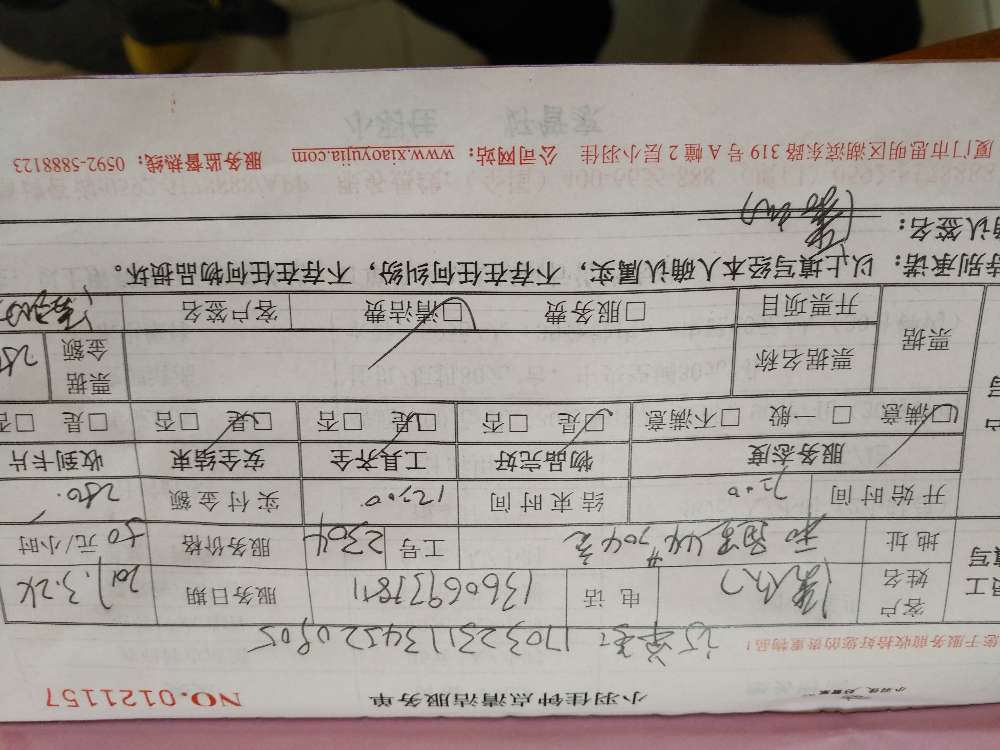 小羽佳钟点清洁服务单 NO.0121157
您于服务前收拾好您的贵重物品！ 订单号：17032311345220905
客户姓名 电话 13606937811 服务日期 2017.3.24
地址 工号 2304 服务价格 50元/小时
开始时间 7:00 结束时间 12:00 实付金额 250.
服务态度 物品完好 工具齐全 安全结束 收到卡片
□满意 □一般 □不满意 □是 □否 □是 □否 □是 □否 □是 □否
票据 票据名称 票据金额 250
开票项目 □服务费 □清洁费 客户签名
特别承诺：以上填写经本人确认属实，不存在任何纠纷，不存在任何物品损坏。
确认签名：
厦门市思明区湖滨东路 319 号 A 幢 2 层小羽佳 公司网站：www.xiaoyujia.com 服务监督热线：0592-5888123